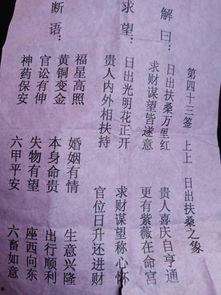 第四十三签 上上 日出扶桑之象
解曰：
日出扶桑万里红 贵人喜庆自亨通
求财谋望皆遂意 更有紫薇在命宫
求望：
日出光明花正开 求财谋望称心怀
贵人内外相扶持 官位日升还进财
断语：
福星高照 婚姻有情 生意兴隆
黄铜变金 本身命贵 出行顺利
官讼有伸 失物有望 座西向东
神药保安 六甲平安 六畜如意